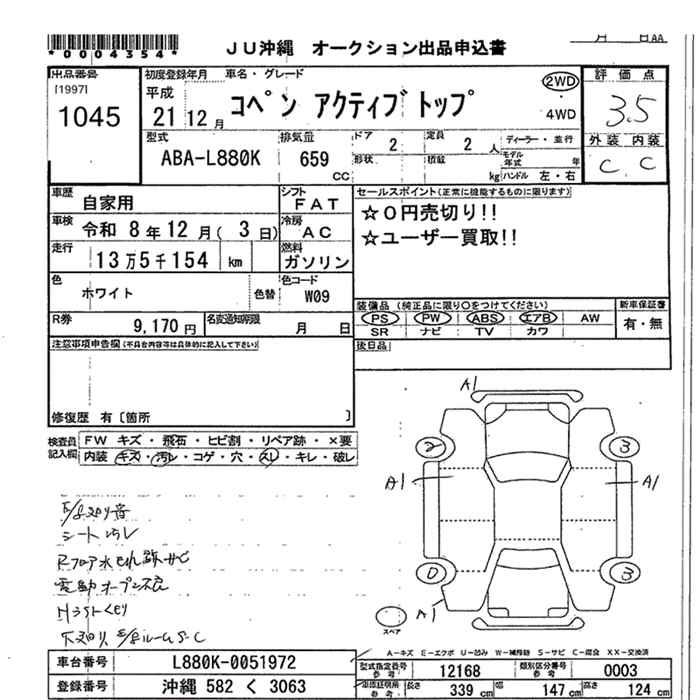 *0004354*
JU沖縄 オークション出品申込書
月 日AA
出品番号
[1997]
1045
初度登録年月 車名・グレード
平成
21 12月
コペン アクティブトップ
2WD
4WD
評価点
3.5
外装 内装
C C
型式
ABA-L880K
排気量
659
CC
ドア 2
形状
定員 2 人
積載 kg
ディーラー・並行
モデル年式 年
ハンドル 左・右
車歴 自家用
シフト FAT
車検 令和 8年12月( 3日)
冷房 AC
走行 13万5千154 km
燃料 ガソリン
色 ホワイト
色替
色コード W09
R券 9,170円
名変通知期限 月 日
セールスポイント(正常に機能するものに限ります)
☆0円売切り!!
☆ユーザー買取!!
装備品 (純正品に限り〇をつけてください)
PS PW ABS エアB AW
SR ナビ TV カワ
新車保証書
有・無
後日品
注意事項申告欄(不具合内容等は具体的に記入して下さい)
修復歴 有〔箇所 〕
検査員記入欄
FW キズ・飛石・ヒビ割・リペア跡・×要
内装 キズ・汚レ・コゲ・穴・スレ・キレ・破レ
シート汚レ
A1
2 3
A1 A1
0 3
A1
スペア
A-キズ E-エクボ U-凹み W-補修跡 S-サビ C-腐食 XX-交換済
車台番号 L880K-0051972
登録番号 沖縄 582 く 3063
型式指定番号 参考 12168
類別区分番号 参考 0003
車庫証明用 参考 長さ 339 cm 幅 147 cm 高さ 124 cm